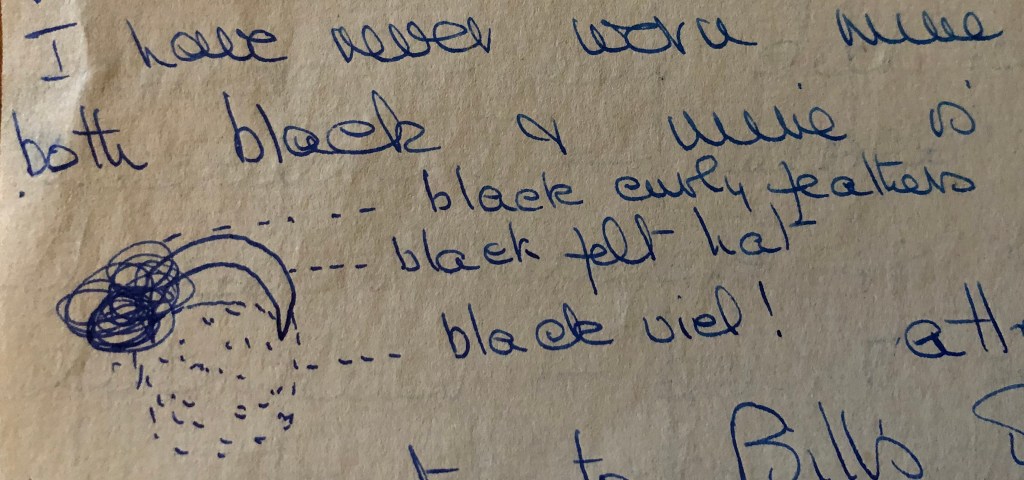 I have never worn mine
both black & mine is
black curly feathers
black felt hat
black viel!
to Bill's